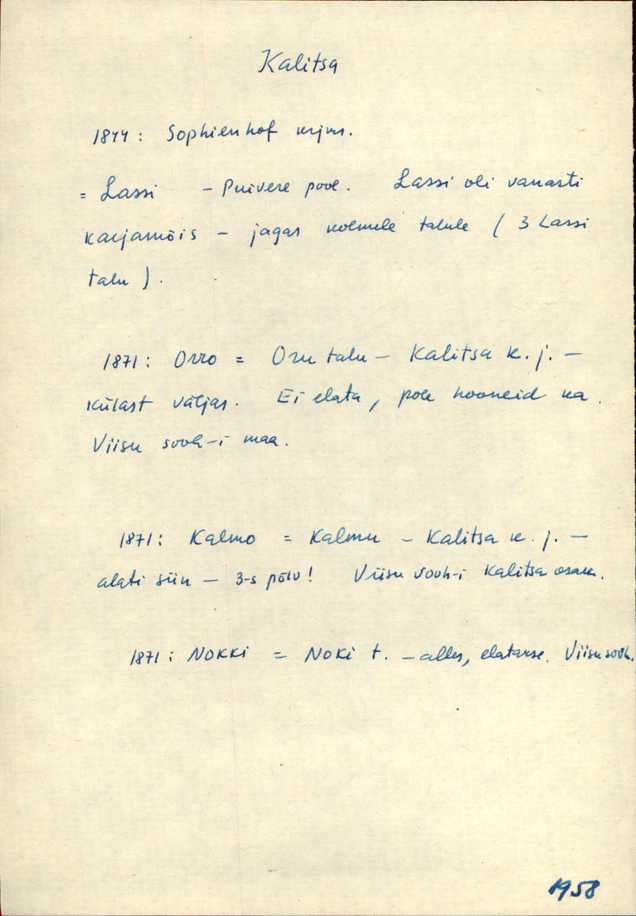 Kalitsa
1844: Sophienhof krjms.
= Lassi - Puivere pool. Lassi oli vanasti
karjamõis - jagas kolmele talule ( 3 Lassi
talu ).
1871: Orro = Oru talu - Kalitsa k. j. -
külast väljas. Ei elata, pole hooneid ka.
Viisu sovh-i maa.
1871: Kalmo = Kalmu - Kalitsa k. j. -
alati siin - 3-s põlv! Viisu sovh-i Kalitsa osak.
1871: Nokki = Noki t. - alles, elatakse. Viisu sovh.
1958